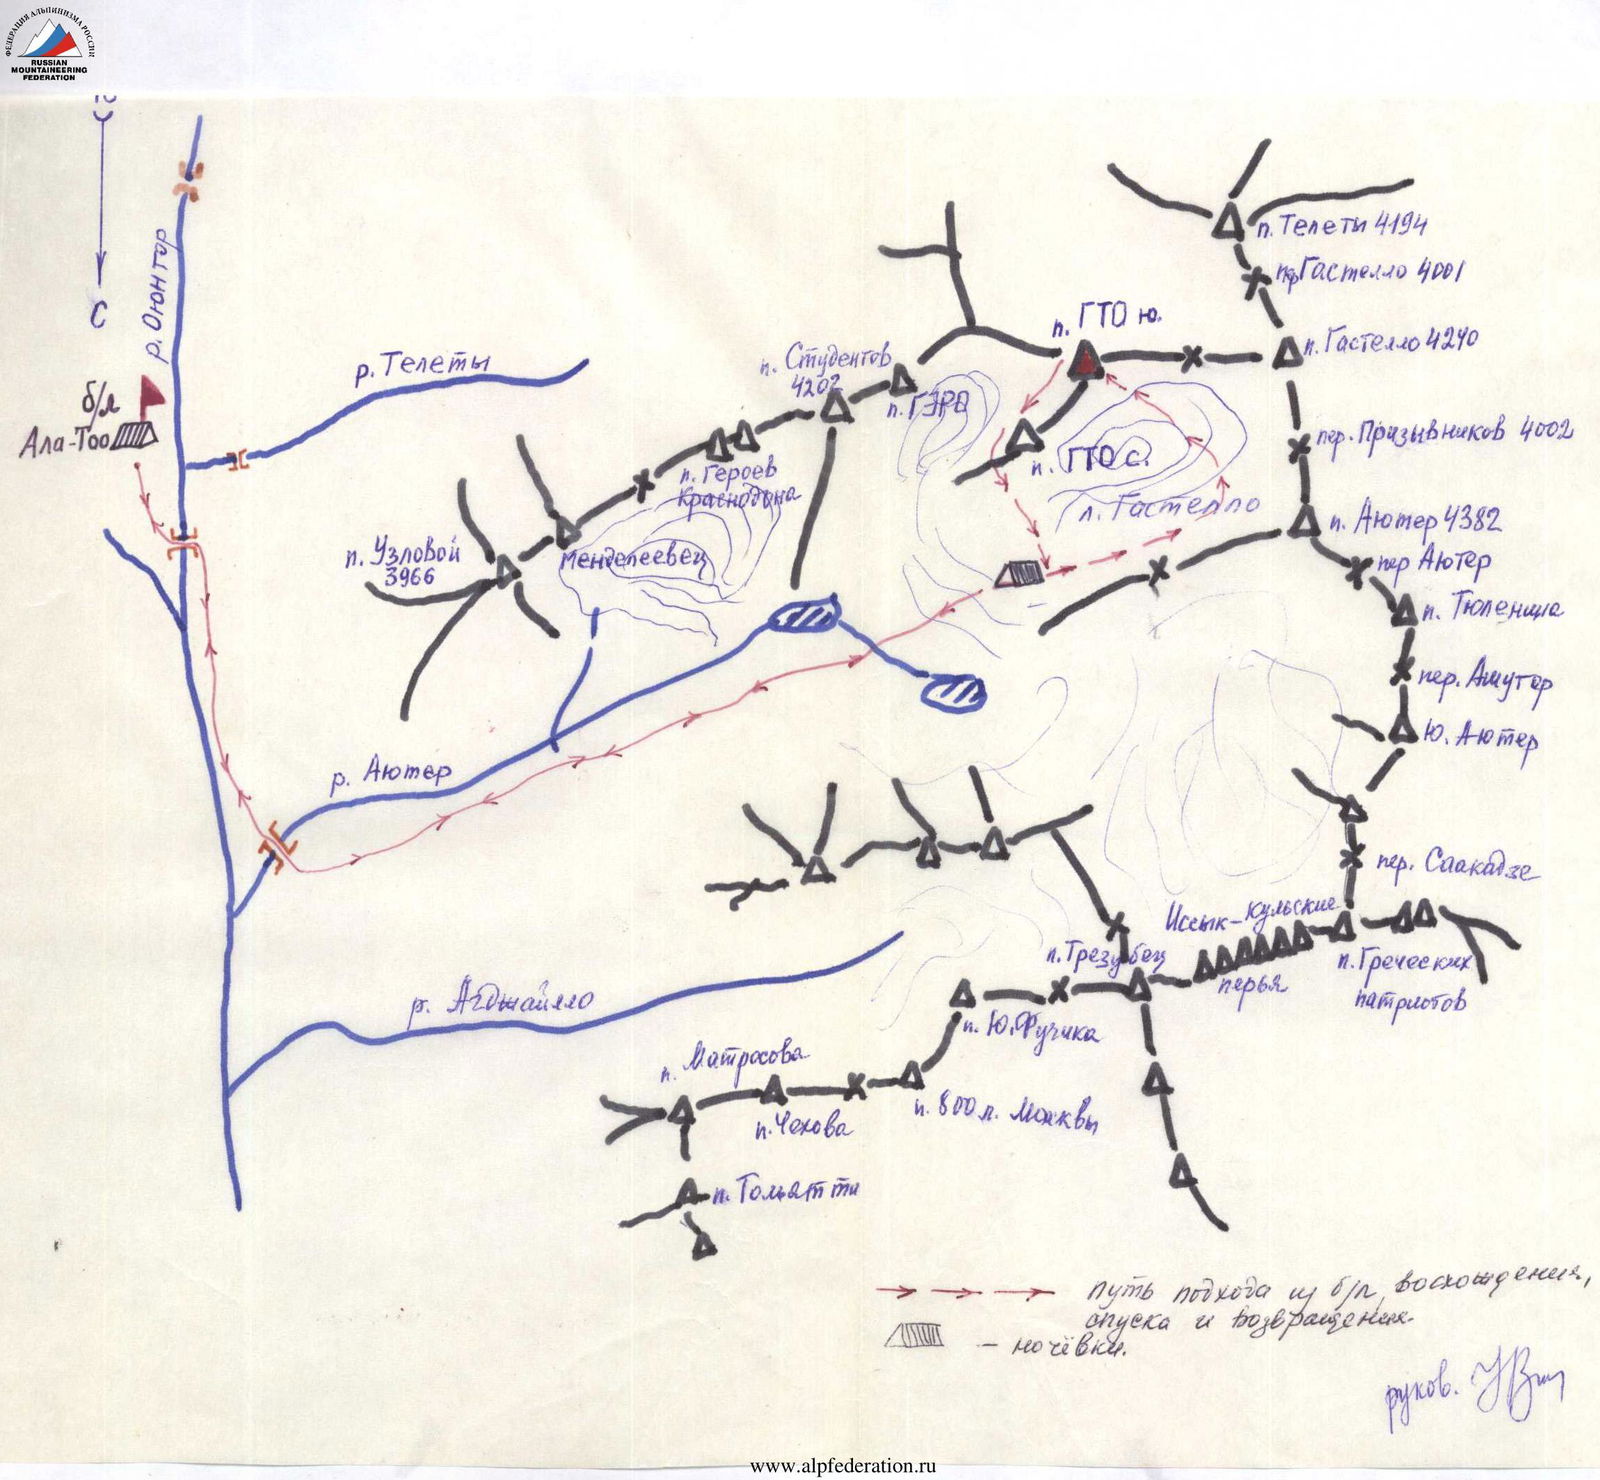 ФЕДЕРАЦИЯ АЛЬПИНИЗМА РОССИИ
RUSSIAN
MOUNTAINEERING
FEDERATION
С
р. Оюнтор
р. Телеты
б/л
Ала-Тоо
п. Узловой
3966
Менделеевец
п. Героев
Краснодона
п. Студентов
4202
п. ГЭРВ
п. ГТО ю.
п. ГТО с.
л. Гастелло
п. Телети 4194
пер. Гастелло 4001
п. Гастелло 4240
пер. Призывников 4002
п. Аютер 4382
пер Аютер
п. Тюленина
пер. Ашутор
Ю. Аютер
пер. Саакадзе
Иссык-Кульские
перья
п. Греческих
патриотов
п. Трезубец
п. Ю. Фучика
р. Аютер
р. Агджайлло
п. Матросова
п. Чехова
п. 800 л. Москвы
п. Тольятти
путь подхода из б/л, восхождения,
спуска и возвращения.
– ночёвки.
руков.
www.alpfederation.ru